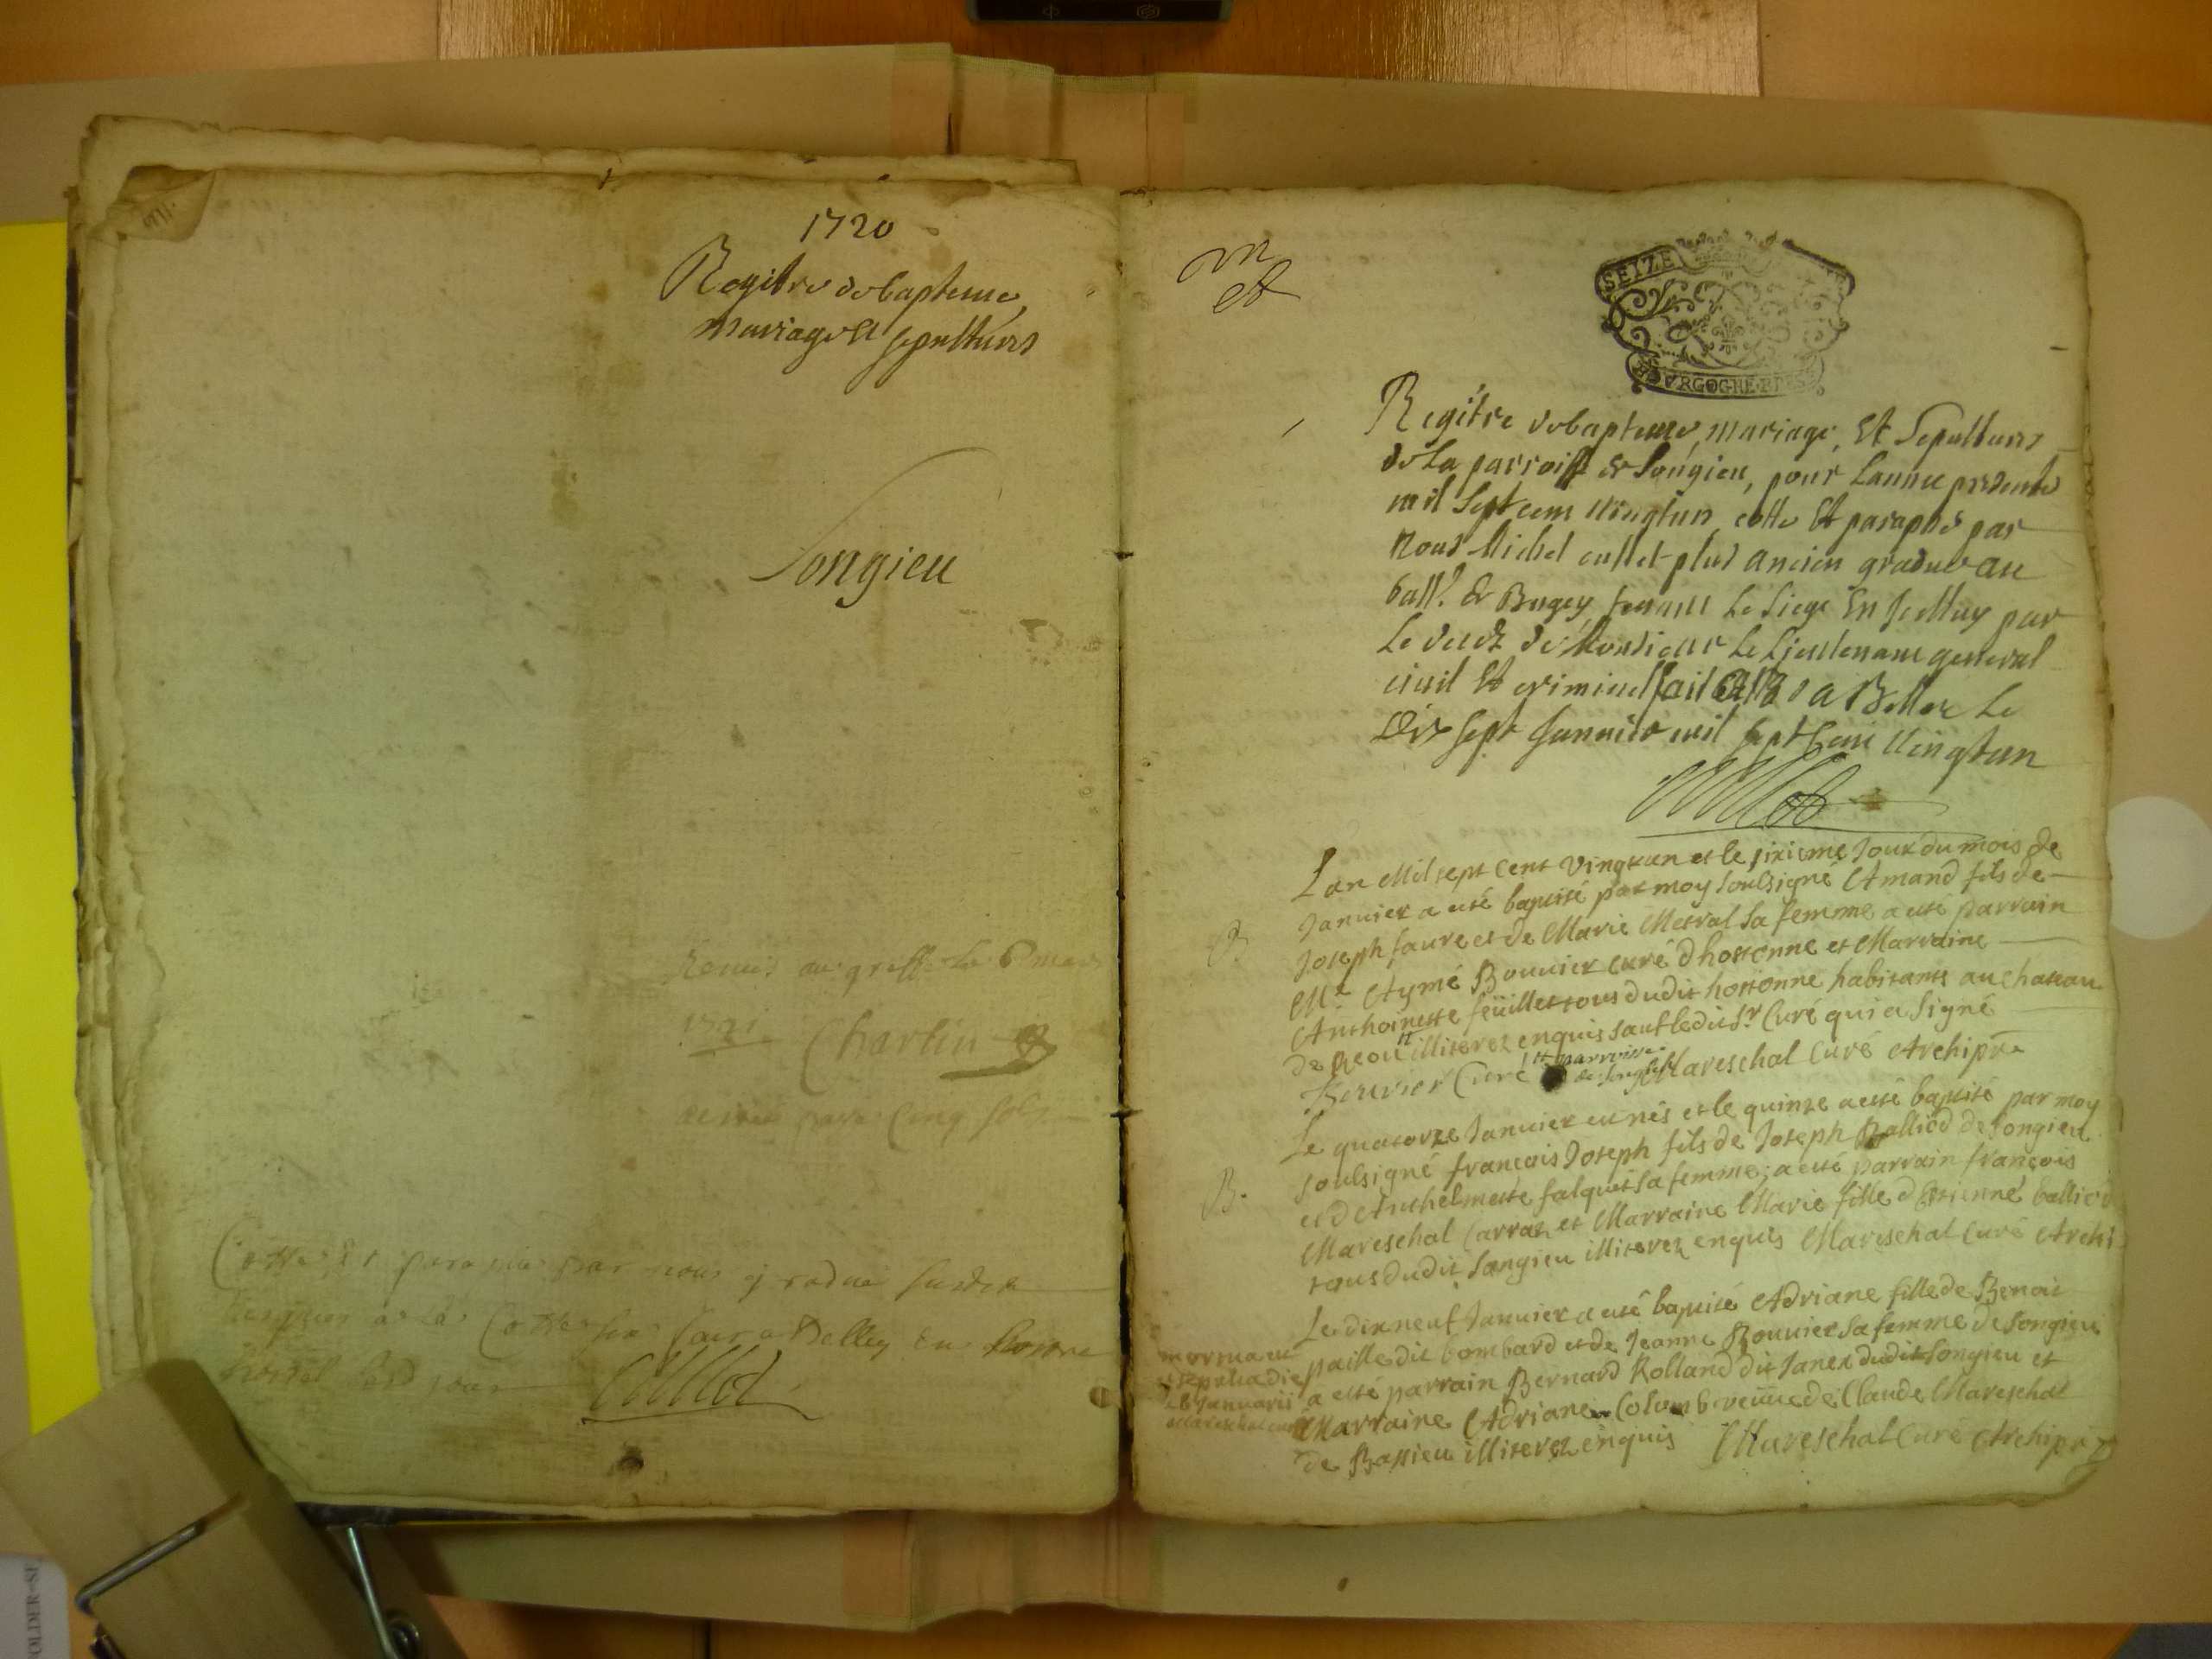 1720
Regitre de bapteme,
mariage et sepultures
Songieu
Remis au greffe le 6 mars
1721 Chartin
cinq sols
Cotté et paraphé par nous gradué susdit
fait a Belley en hotel
ledit jour Cullet
SEIZE
BOURGOGNE BRES
Regitre de bapteme, mariage, Et Sepultures
de La parroisse de Songieu, pour Lannee presente
mil Sept cent vingtun cotté Et paraphé par
Nous Michel cullet plus ancien gradué au
ball. de Bugey tenant Le Siege par
Le deces de Monsieur Le Lieutenant general
civil Et criminel fait a Belley Le
Dix sept Janvier mil sept Cent vingtun
Cullet
Lan Mil sept Cent vingtun et le sixieme Jour du mois de
Janvier a esté baptisé par moy soubsigné Amand fils de
Joseph faure et de Marie Mestral sa femme a esté parrain
Mre Aymé Bouvier curé dhostonne et Marraine
Anthoinette feüillet tous dudit hostonne habitants au chateau
de illiterez enquis sauf ledit Sr Curé qui a Signé
Bouvier Curé Mareschal Curé Archipre
B. Le quatorze Janvier est nés et le quinze a esté baptisé par moy
soubsigné francois Joseph fils de Joseph Balliod de Songieu
et dAnthelmette falquet sa femme; a esté parrain françois
Mareschal Carraz et Marraine Marie fille dEstienne balliod
tous dudit Songieu illiterez enquis Mareschal Curé Archi
Le dixneuf Janvier a esté baptisé Adriane fille de Benoit
paille dit bombard et de Jeanne Bouvier sa femme de Songieu
a esté parrain Bernard Rolland dit Janex dudit Songieu et
Marraine Adriane Columb veüve de Claude Mareschal
de Bassieu illiterez enquis Mareschal Curé Archipr
mortua est
et sepulta die
26 Januarii
Mareschal curé